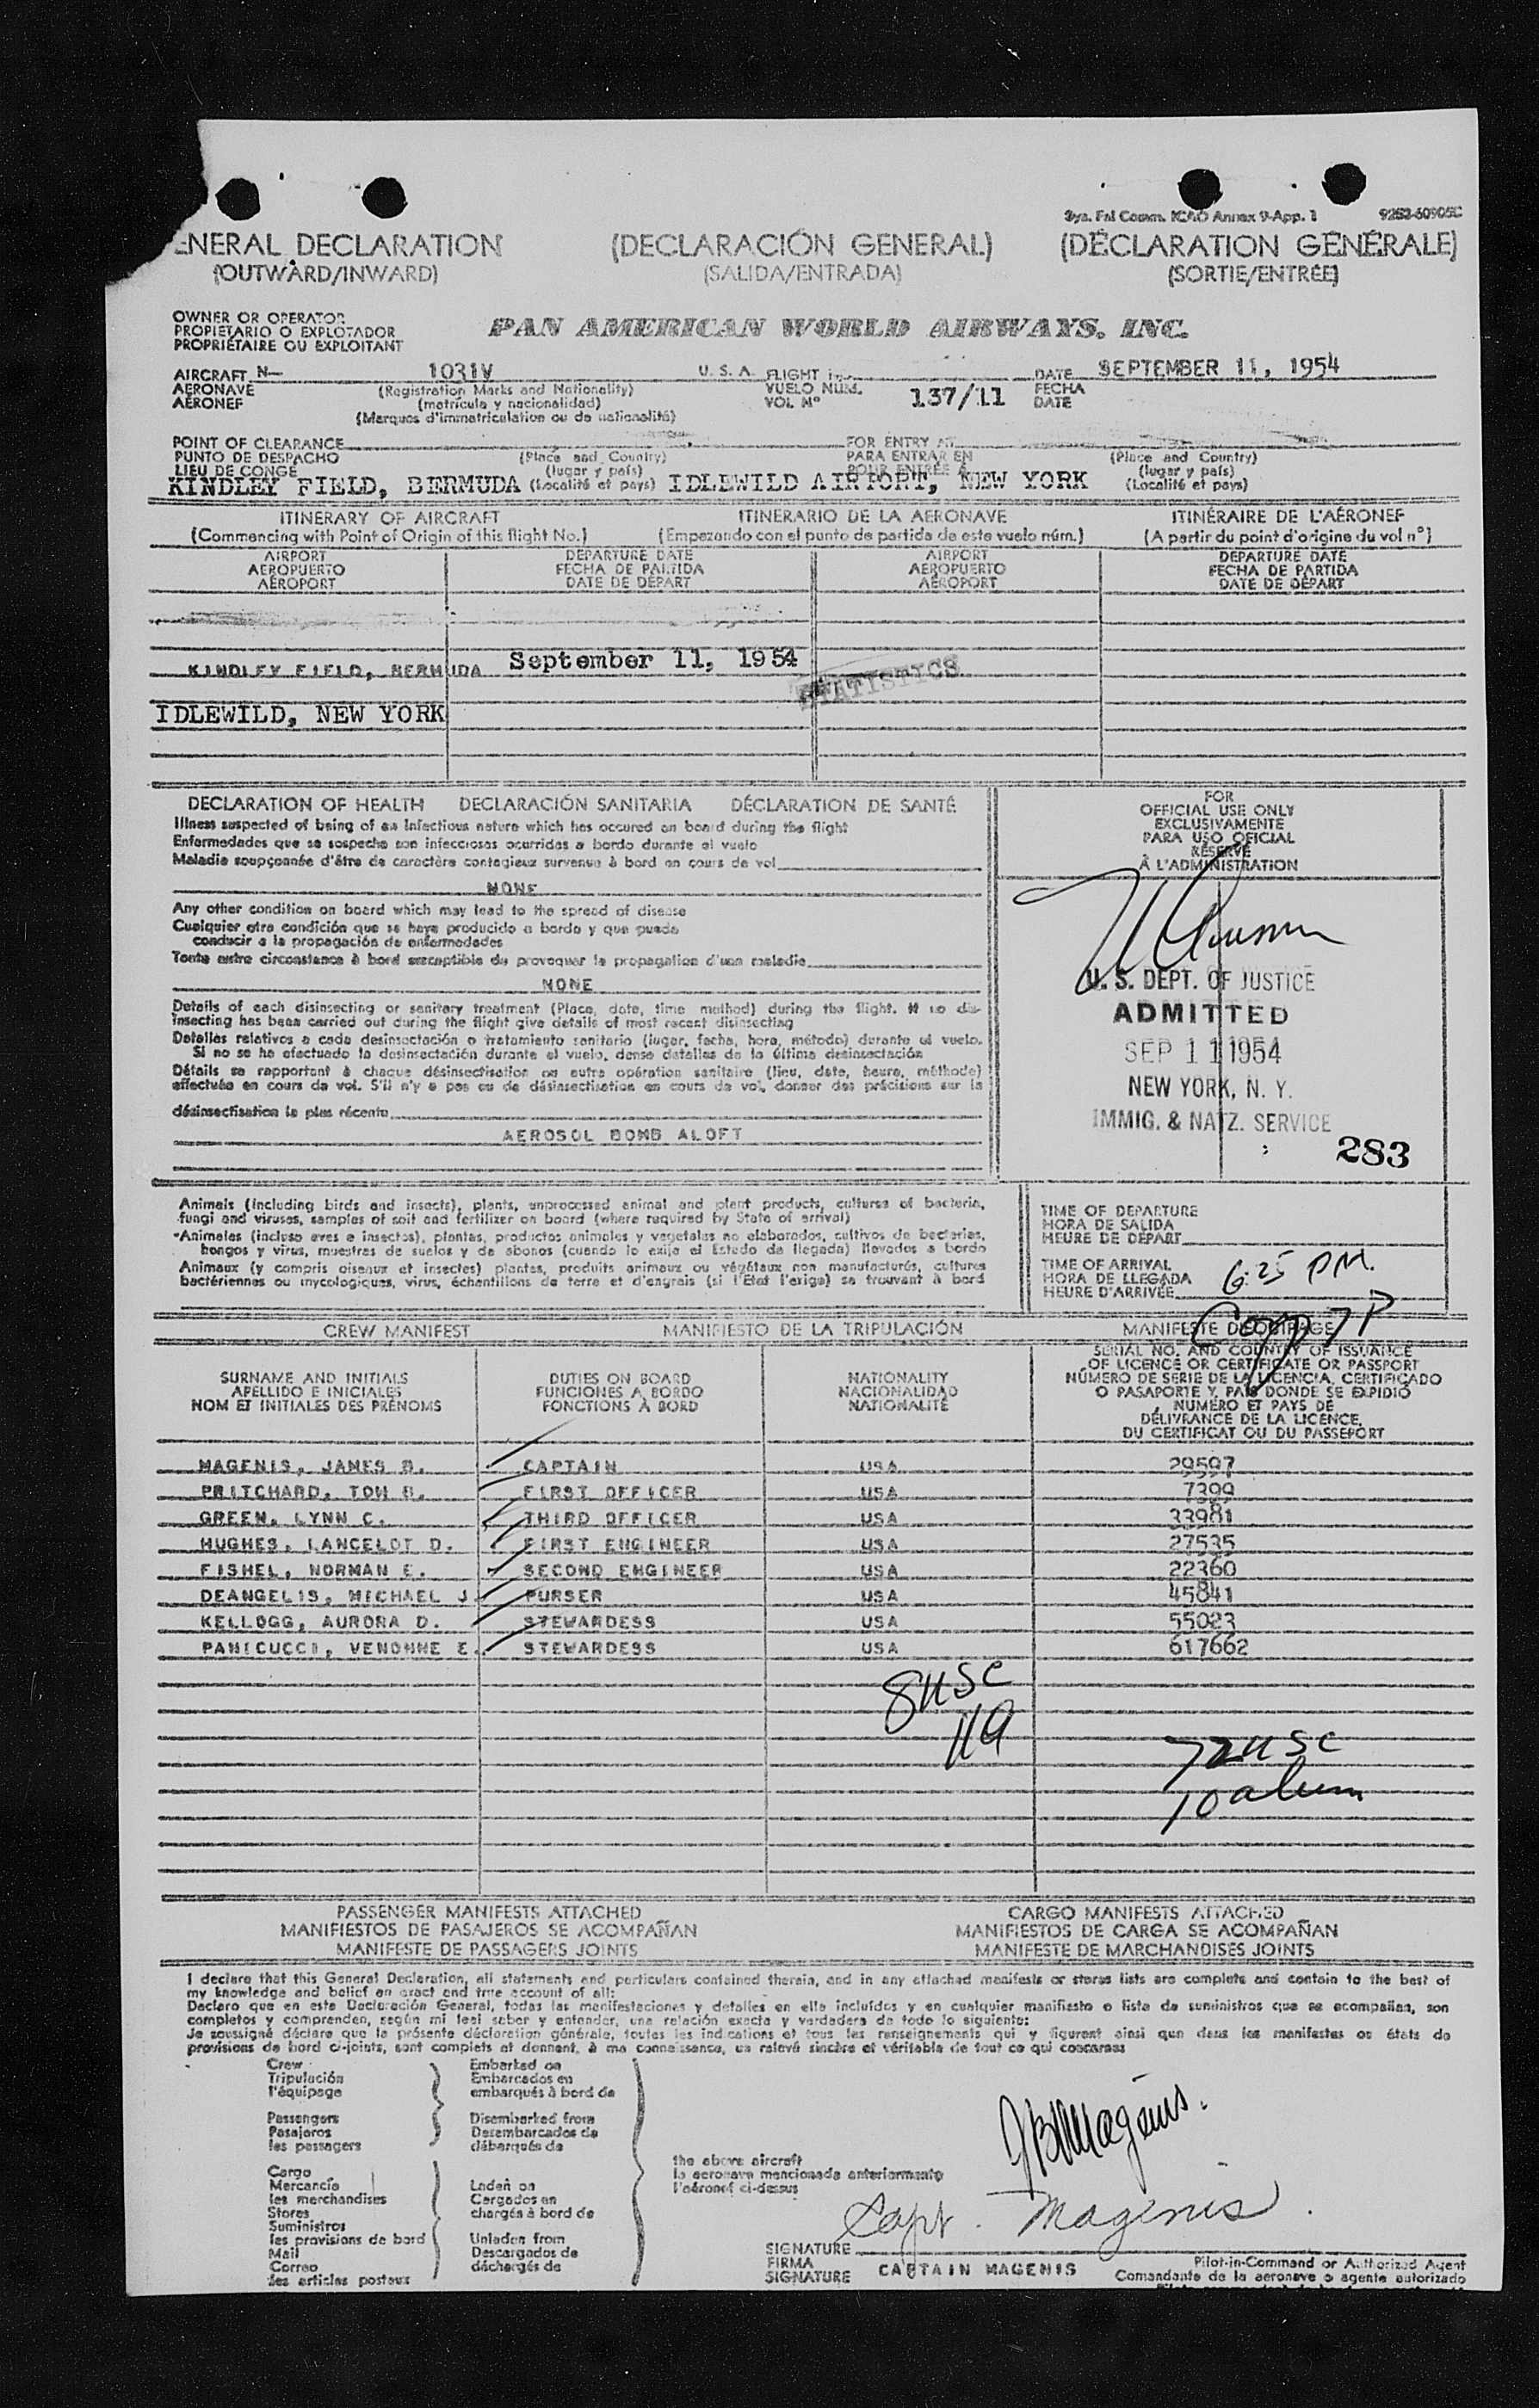 Sys. Fal Comm. ICAO Annex 9-App. 1
ENERAL DECLARATION (DECLARACIÓN GENERAL) (DÉCLARATION GÉNÉRALE)
(OUTWARD/INWARD) (SALIDA/ENTRADA) (SORTIE/ENTRÉE)
OWNER OR OPERATOR
PROPIETARIO O EXPLOTADOR
PROPRIÉTAIRE OU EXPLOITANT
PAN AMERICAN WORLD AIRWAYS, INC.
AIRCRAFT N— 1031V U. S. A. FLIGHT DATE SEPTEMBER 11, 1954
AERONAVE (Registration Marks and Nationality) VUELO NÚM. 137/11 FECHA
AÉRONEF (matrícula y nacionalidad) VOL Nº DATE
(Marques d'immatriculation ou de nationalité)
POINT OF CLEARANCE FOR ENTRY AT
PUNTO DE DESPACHO (Place and Country) PARA ENTRAR EN (Place and Country)
LIEU DE CONGÉ (lugar y país) POUR ENTRÉE À (lugar y país)
KINDLEY FIELD, BERMUDA (Localité et pays) IDLEWILD AIRPORT, NEW YORK (Localité et pays)
ITINERARY OF AIRCRAFT ITINERARIO DE LA AERONAVE ITINÉRAIRE DE L'AÉRONEF
(Commencing with Point of Origin of this flight No.) (Empezando con el punto de partida de este vuelo núm.) (A partir du point d'origine du vol nº)
AIRPORT DEPARTURE DATE AIRPORT DEPARTURE DATE
AEROPUERTO FECHA DE PARTIDA AEROPUERTO FECHA DE PARTIDA
AÉROPORT DATE DE DÉPART AÉROPORT DATE DE DÉPART
KINDLEY FIELD, BERMUDA September 11, 1954
STATISTICS
IDLEWILD, NEW YORK
DECLARATION OF HEALTH DECLARACIÓN SANITARIA DÉCLARATION DE SANTÉ
Illness suspected of being of an infectious nature which has occured on board during the flight
Enfermedades que se sospecha son infecciosas ocurridas a bordo durante el vuelo
Maladie soupçonnée d'être de caractère contagieux survenue à bord en cours de vol
NONE
Any other condition on board which may lead to the spread of disease
Cualquier otra condición que se haya producido a bordo y que pueda
conducir a la propagación de enfermedades
Toute autre circonstance à bord susceptible de provoquer la propagation d'une maladie
NONE
Details of each disinsecting or sanitary treatment (Place, date, time method) during the flight. If no dis-
insecting has been carried out during the flight give details of most recent disinsecting
Detalles relativos a cada desinsectación o tratamiento sanitario (lugar, fecha, hora, método) durante el vuelo.
Si no se ha efectuado la desinsectación durante el vuelo, dense detalles de la última desinsectación
Détails se rapportant à chaque désinsectisation ou autre opération sanitaire (lieu, date, heure, méthode)
effectuée en cours de vol. S'il n'y a pas eu de désinsectisation en cours de vol, donner des précisions sur la
désinsectisation la plus récente
AEROSOL BOMB ALOFT
FOR
OFFICIAL USE ONLY
EXCLUSIVAMENTE
PARA USO OFICIAL
RÉSERVÉ
À L'ADMINISTRATION
U. S. DEPT. OF JUSTICE
ADMITTED
SEP 11 1954
NEW YORK, N. Y.
IMMIG. & NATZ. SERVICE
283
Animals (including birds and insects), plants, unprocessed animal and plant products, cultures of bacteria,
fungi and viruses, samples of soil and fertilizer on board (where required by State of arrival)
Animales (incluso aves e insectos), plantas, productos animales y vegetales no elaborados, cultivos de bacterias,
hongos y virus, muestras de suelos y de abonos (cuando lo exija el Estado de llegada) llevados a bordo
Animaux (y compris oiseaux et insectes) plantes, produits animaux ou végétaux non manufacturés, cultures
bactériennes ou mycologiques, virus, échantillons de terre et d'engrais (si l'État l'exige) se trouvant à bord
TIME OF DEPARTURE
HORA DE SALIDA
HEURE DE DÉPART
TIME OF ARRIVAL
HORA DE LLEGADA 6:25 PM.
HEURE D'ARRIVÉE
CREW MANIFEST MANIFIESTO DE LA TRIPULACIÓN MANIFESTE D'ÉQUIPAGE
SURNAME AND INITIALS
APELLIDO E INICIALES
NOM ET INITIALES DES PRÉNOMS
DUTIES ON BOARD
FUNCIONES A BORDO
FONCTIONS À BORD
NATIONALITY
NACIONALIDAD
NATIONALITÉ
SERIAL NO. AND COUNTRY OF ISSUANCE
OF LICENCE OR CERTIFICATE OR PASSPORT
NÚMERO DE SERIE DE LA LICENCIA, CERTIFICADO
O PASAPORTE Y PAÍS DONDE SE EXPIDIÓ
NUMÉRO ET PAYS DE
DÉLIVRANCE DE LA LICENCE,
DU CERTIFICAT OU DU PASSEPORT
MAGENIS, JAMES B. CAPTAIN USA 29597
PRITCHARD, TOM B. FIRST OFFICER USA 7399
GREEN, LYNN C. THIRD OFFICER USA 33981
HUGHES, LANCELOT D. FIRST ENGINEER USA 27535
FISHEL, NORMAN E. SECOND ENGINEER USA 22360
DEANGELIS, MICHAEL J. PURSER USA 45841
KELLOGG, AURORA D. STEWARDESS USA 55023
PANICUCCI, VENONNE E. STEWARDESS USA 617662
8 USC
72 USC
10 alien
PASSENGER MANIFESTS ATTACHED CARGO MANIFESTS ATTACHED
MANIFIESTOS DE PASAJEROS SE ACOMPAÑAN MANIFIESTOS DE CARGA SE ACOMPAÑAN
MANIFESTE DE PASSAGERS JOINTS MANIFESTE DE MARCHANDISES JOINTS
I declare that this General Declaration, all statements and particulars contained therein, and in any attached manifests or stores lists are complete and contain to the best of
my knowledge and belief an exact and true account of all:
Declaro que en esta Declaración General, todas las manifestaciones y detalles en ella incluídos y en cualquier manifiesto o lista de suministros que se acompañan, son
completos y comprenden, según mi leal saber y entender, una relación exacta y verdadera de todo lo siguiente:
Je soussigné déclare que la présente déclaration générale, toutes les indications et tous les renseignements qui y figurent ainsi que dans les manifestes ou états de
provisions de bord ci-joints, sont complets et donnent, à ma connaissance, un relevé sincère et véritable de tout ce qui concerne
Crew
Tripulación
l'équipage
Passengers
Pasajeros
les passagers
Cargo
Mercancía
les marchandises
Stores
Suministros
les provisions de bord
Mail
Correo
les articles postaux
Embarked on
Embarcados en
embarqués à bord de
Disembarked from
Desembarcados de
débarqués de
Laden on
Cargados en
chargés à bord de
Unladen from
Descargados de
déchargés de
the above aircraft
la aeronave mencionada anteriormente
l'aéronef ci-dessus
JBMagenis.
Capt. Magenis.
SIGNATURE
FIRMA
SIGNATURE
CAPTAIN MAGENIS
Pilot-in-Command or Authorized Agent
Comandante de la aeronave o agente autorizado